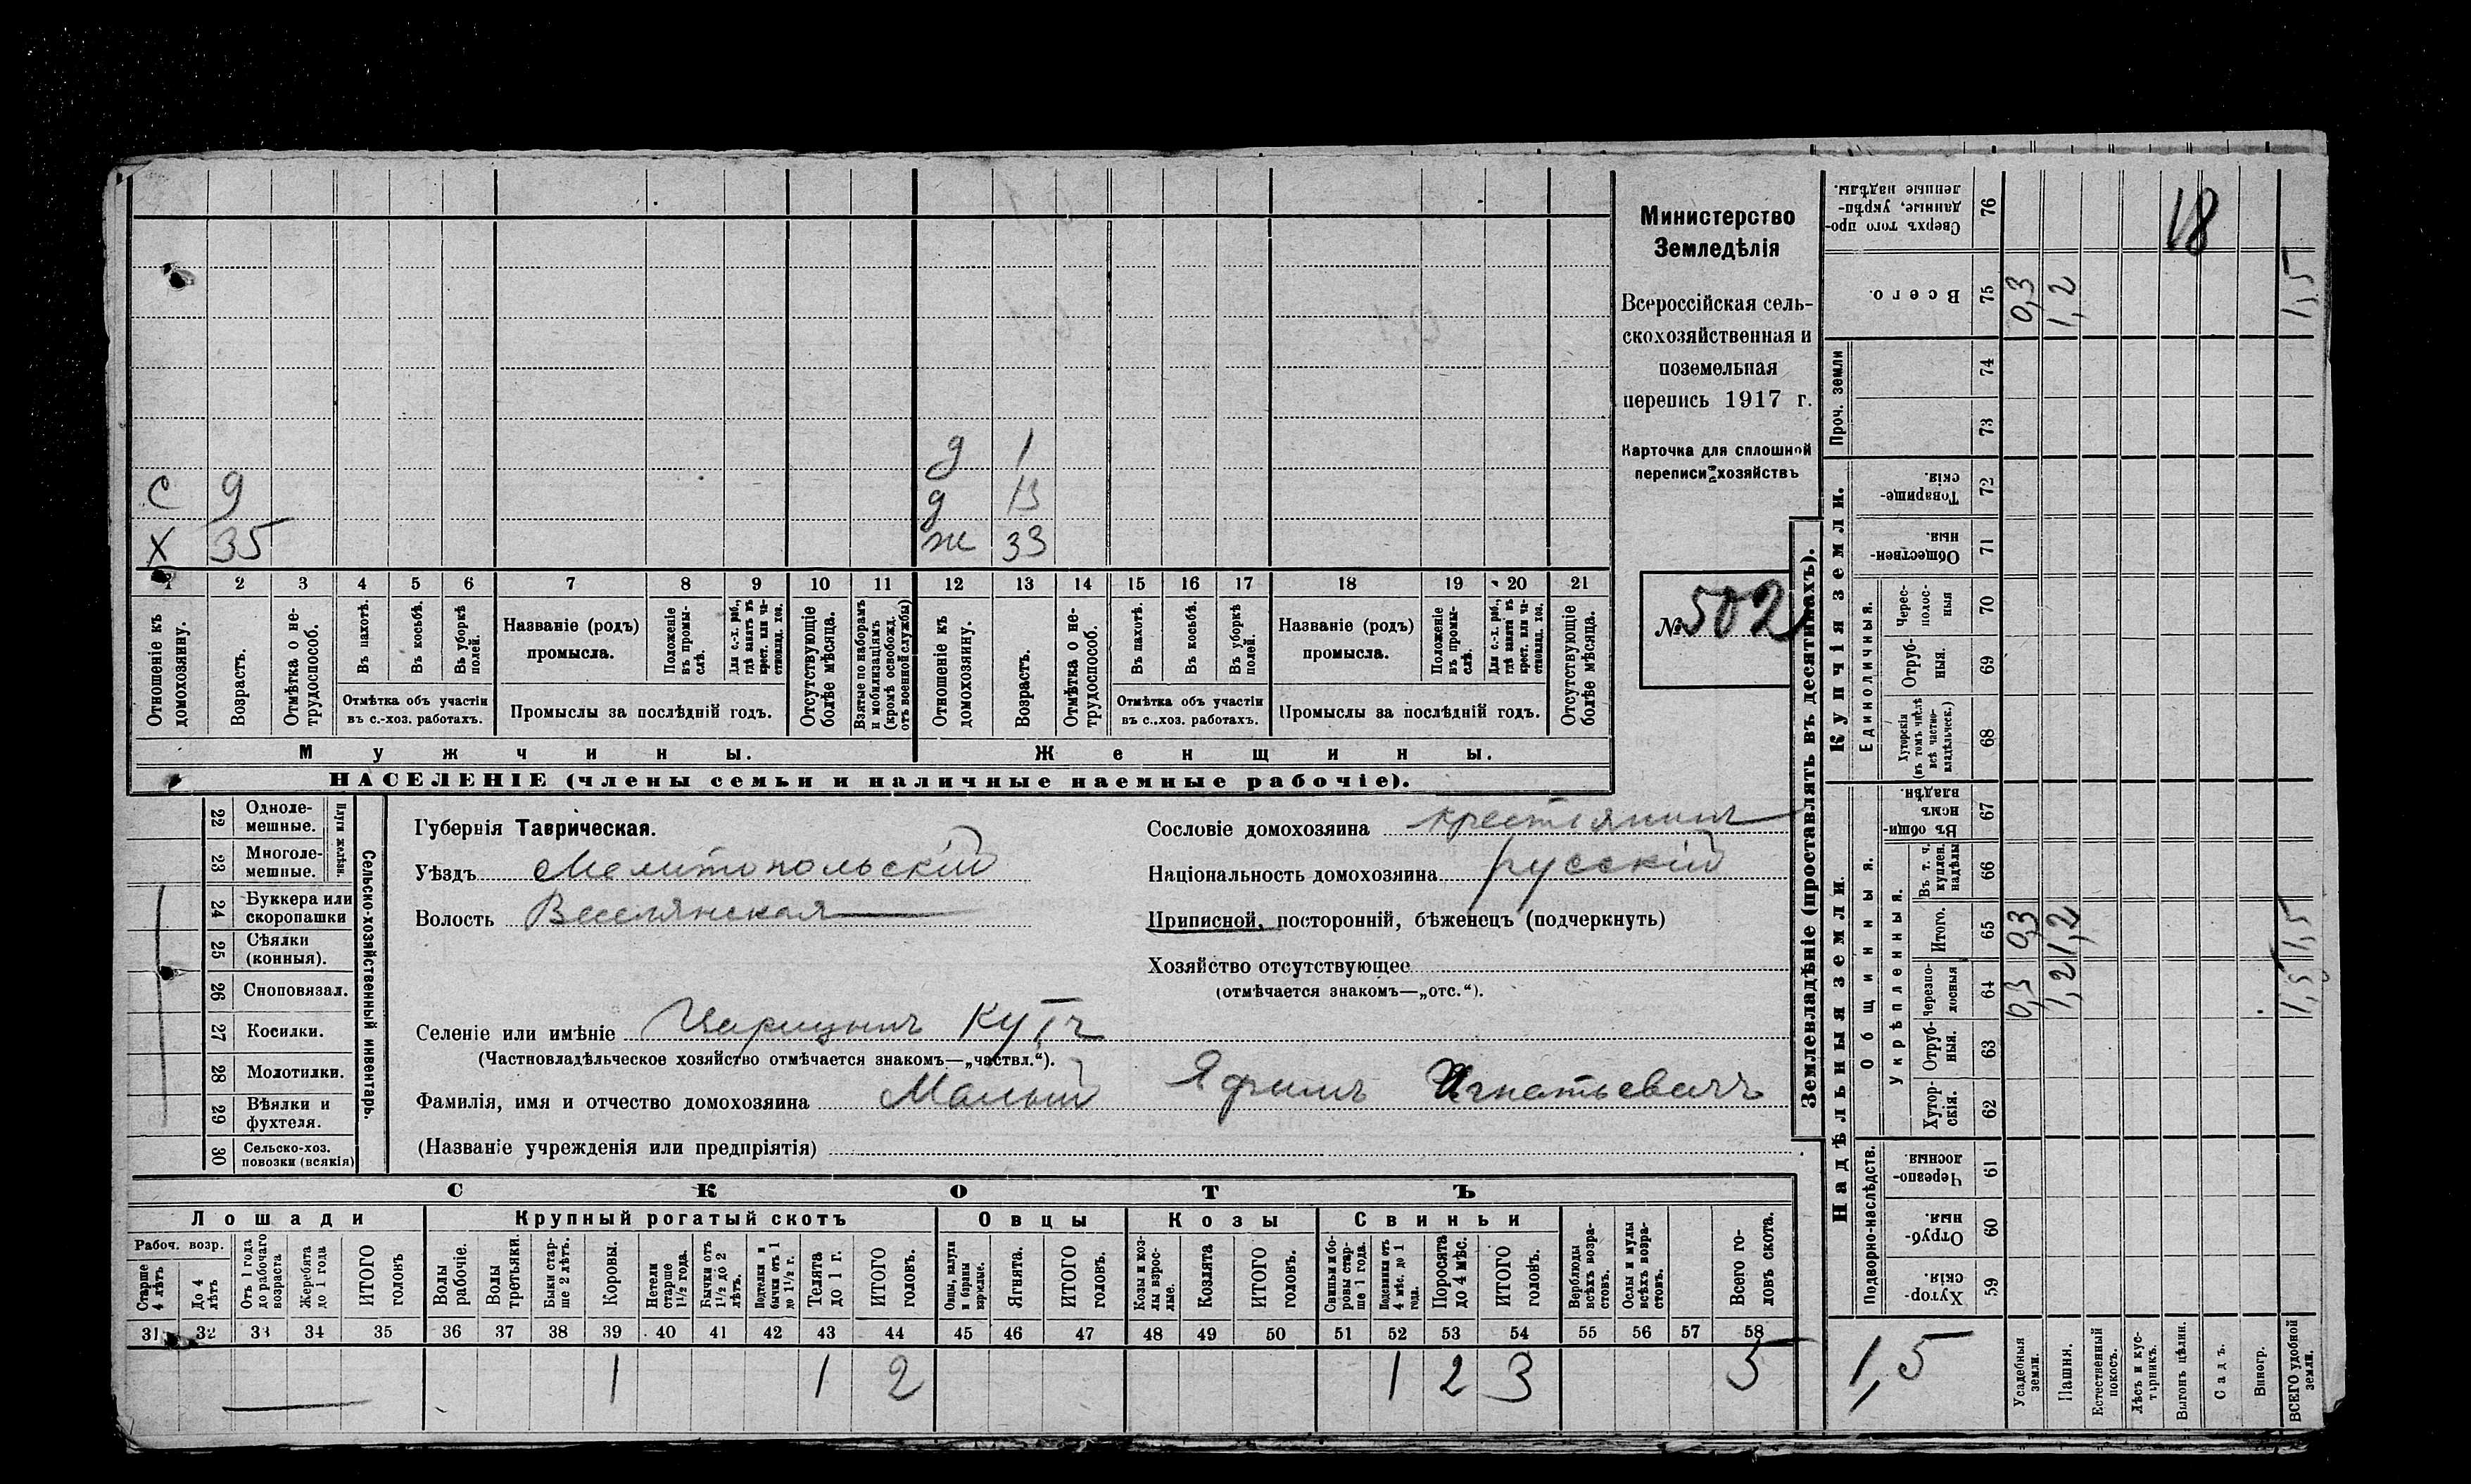 Министерство
Земледѣлія
Всероссійская сель-
скохозяйственная и
поземельная
перепись 1917 г.
Карточка для сплошной
переписи хозяйствъ
№ 502
д 1
С 9 д 13
Х 35 ж 33
1 2 3 4 5 6 7 8 9 10 11 12 13 14 15 16 17 18 19 20 21
Отношеніе къ домохозяину.
Возрастъ.
Отмѣтка о не-трудоспособ.
Въ пахотѣ.
Въ косьбѣ.
Въ уборкѣ полей.
Отмѣтка объ участіи
въ с.-хоз. работахъ.
Названіе (родъ)
промысла.
Положеніе въ промы-слѣ.
Для с.-х. раб., гдѣ занятъ въ крест. или ча-стновлад. хоз.
Промыслы за послѣдній годъ.
Отсутствующіе болѣе мѣсяца.
Взятые по наборамъ и мобилизаціямъ (кромѣ освобожд. отъ военной службы)
Отношеніе къ домохозяину.
Возрастъ.
Отмѣтка о не-трудоспособ.
Въ пахотѣ.
Въ косьбѣ.
Въ уборкѣ полей.
Отмѣтка объ участіи
въ с.-хоз. работахъ.
Названіе (родъ)
промысла.
Положеніе въ промы-слѣ.
Для с.-х. раб., гдѣ занята въ крест. или ча-стновлад. хоз.
Промыслы за послѣдній годъ.
Отсутствующіе болѣе мѣсяца.
Мужчины. Женщины.
НАСЕЛЕНІЕ (члены семьи и наличные наемные рабочіе).
22 Одноле-мешные.
23 Многоле-мешные.
Плуги желѣзн.
24 Буккера или скоропашки
25 Сѣялки (конныя).
26 Сноповязал.
27 Косилки.
28 Молотилки.
29 Вѣялки и фухтеля.
30 Сельско-хоз. повозки (всякія)
Сельско-хозяйственный инвентарь.
Губернія Таврическая.
Уѣздъ Мелитопольскій
Волость Веселянская
Селеніе или имѣніе Царицынъ Кутъ
(Частновладѣльческое хозяйство отмѣчается знакомъ—„частвл.“).
Фамилія, имя и отчество домохозяина Малый Яфимъ Игнатьевичъ
(Названіе учрежденія или предпріятія)
Сословіе домохозяина крестьянинъ
Національность домохозяина русскій
Приписной, посторонній, бѣженецъ (подчеркнуть)
Хозяйство отсутствующее
(отмѣчается знакомъ—„отс.“).
СКОТЪ
Лошади Крупный рогатый скотъ Овцы Козы Свиньи
Рабоч. возр.
Старше 4 лѣтъ
До 4 лѣтъ
Отъ 1 года до рабочаго возраста
Жеребята до 1 года
ИТОГО головъ
Волы рабочіе.
Волы третьяки.
Быки стар-ше 2 лѣтъ.
Коровы.
Нетели старше 1 1/2 года.
Бычки отъ 1 1/2 до 2 лѣтъ.
Подтелки и бычки отъ 1 до 1 1/2 г.
Телята до 1 г.
ИТОГО головъ.
Овцы, валухи и бараны взрослые.
Ягнята.
ИТОГО головъ.
Козы и коз-лы взрос-лые.
Козлята
ИТОГО головъ.
Свиньи и бо-ровы стар-ше 1 года.
Подсвинки отъ 4 мѣс. до 1 года.
Поросята до 4 мѣс.
ИТОГО головъ.
Верблюды всѣхъ возра-стовъ.
Ослы и мулы всѣхъ возра-стовъ.
Всего го-ловъ скота.
31 32 33 34 35 36 37 38 39 40 41 42 43 44 45 46 47 48 49 50 51 52 53 54 55 56 57 58
1 1 2 1 2 3 5
Землевладѣніе (проставлять въ десятинахъ).
Надѣльныя земли
Купчія земли.
Проч. земли
Подворно-наслѣдств.
Общинныя.
Укрѣпленныя.
Единоличныя.
76 Сверхъ того про-данные, укрѣп-ленные надѣлы. 18
75 Всего. 0,3 1,2 1,5
74
73
72 Товарище-скія.
71 Обществен-ныя.
70 Черес-полос-ныя
69 Отруб-ныя.
68 Хуторскія (въ томъ числѣ всѣ частно-владѣльческ.)
67 Въ общи-номъ владѣн.
66 Въ т. ч. куплен. надѣлы
65 Итого. 0,3 1,2 1,5
64 Черезпо-лосныя 0,3 1,2 1,5
63 Отруб-ныя.
62 Хутор-скія.
61 Черезпо-лосныя
60 Отруб-ныя.
59 Хутор-скія.
1,5
Усадебныя земли.
Пашня.
Естественный покосъ.
Лѣсъ и кус-тарникъ.
Выгонъ цѣлин.
Садъ.
Виногр.
ВСЕГО удобной земли.